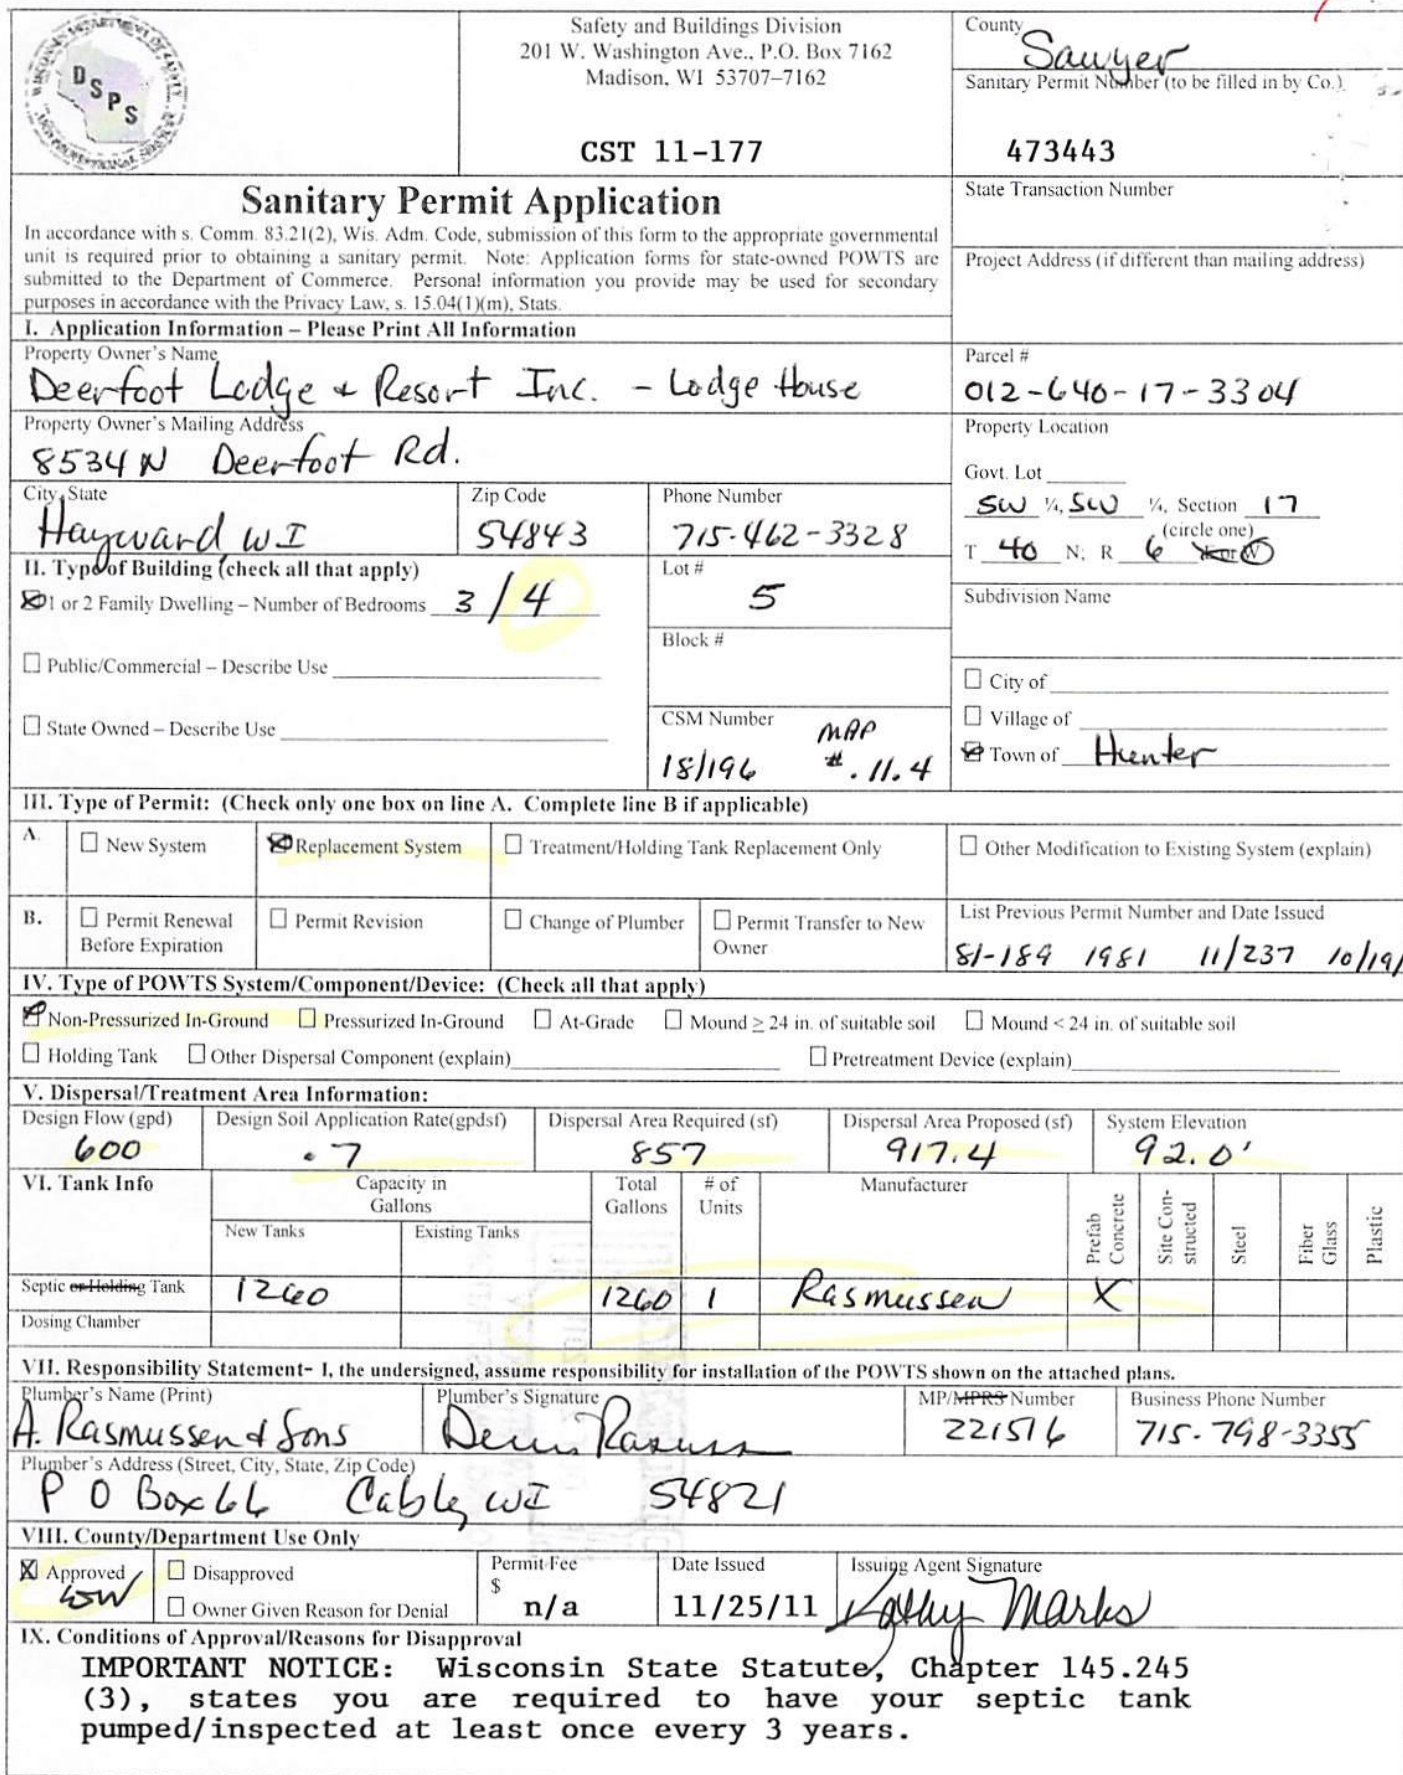 DSPS
Safety and Buildings Division
201 W. Washington Ave., P.O. Box 7162
Madison, WI 53707–7162
CST 11-177
County
Sawyer
Sanitary Permit Number (to be filled in by Co.)
473443
Sanitary Permit Application
In accordance with s. Comm. 83.21(2), Wis. Adm. Code, submission of this form to the appropriate governmental
unit is required prior to obtaining a sanitary permit. Note: Application forms for state-owned POWTS are
submitted to the Department of Commerce. Personal information you provide may be used for secondary
purposes in accordance with the Privacy Law, s. 15.04(1)(m), Stats.
State Transaction Number
Project Address (if different than mailing address)
I. Application Information – Please Print All Information
Property Owner's Name
Deerfoot Lodge & Resort Inc. - Lodge House
Parcel #
012-640-17-3304
Property Owner's Mailing Address
8534N Deerfoot Rd.
Property Location
Govt. Lot
SW ¼, SW ¼, Section 17
(circle one)
T 40 N; R 6 E or W
City, State
Hayward WI
Zip Code
54843
Phone Number
715-462-3328
II. Type of Building (check all that apply)
1 or 2 Family Dwelling – Number of Bedrooms 3/4
Public/Commercial – Describe Use
State Owned – Describe Use
Lot #
5
Block #
CSM Number
18/196
MAP
#.11.4
Subdivision Name
City of
Village of
Town of Hunter
III. Type of Permit: (Check only one box on line A. Complete line B if applicable)
A. New System Replacement System Treatment/Holding Tank Replacement Only Other Modification to Existing System (explain)
B. Permit Renewal Before Expiration Permit Revision Change of Plumber Permit Transfer to New Owner
List Previous Permit Number and Date Issued
81-189 1981 11/237 10/19/
IV. Type of POWTS System/Component/Device: (Check all that apply)
Non-Pressurized In-Ground Pressurized In-Ground At-Grade Mound ≥ 24 in. of suitable soil Mound < 24 in. of suitable soil
Holding Tank Other Dispersal Component (explain) Pretreatment Device (explain)
V. Dispersal/Treatment Area Information:
Design Flow (gpd) Design Soil Application Rate(gpdsf) Dispersal Area Required (sf) Dispersal Area Proposed (sf) System Elevation
600 .7 857 917.4 92.0'
VI. Tank Info Capacity in Gallons Total Gallons # of Units Manufacturer Prefab Concrete Site Constructed Steel Fiber Glass Plastic
New Tanks Existing Tanks
Septic or Holding Tank 1260 1260 1 Rasmussen X
Dosing Chamber
VII. Responsibility Statement- I, the undersigned, assume responsibility for installation of the POWTS shown on the attached plans.
Plumber's Name (Print) Plumber's Signature MP/MPRS Number Business Phone Number
A. Rasmussen & Sons 221516 715-798-3355
Plumber's Address (Street, City, State, Zip Code)
P O Box 66 Cable, WI 54821
VIII. County/Department Use Only
Approved
Disapproved
Owner Given Reason for Denial
Permit Fee
$ n/a
Date Issued
11/25/11
Issuing Agent Signature
Kathy Marks
IX. Conditions of Approval/Reasons for Disapproval
IMPORTANT NOTICE: Wisconsin State Statute, Chapter 145.245
(3), states you are required to have your septic tank
pumped/inspected at least once every 3 years.